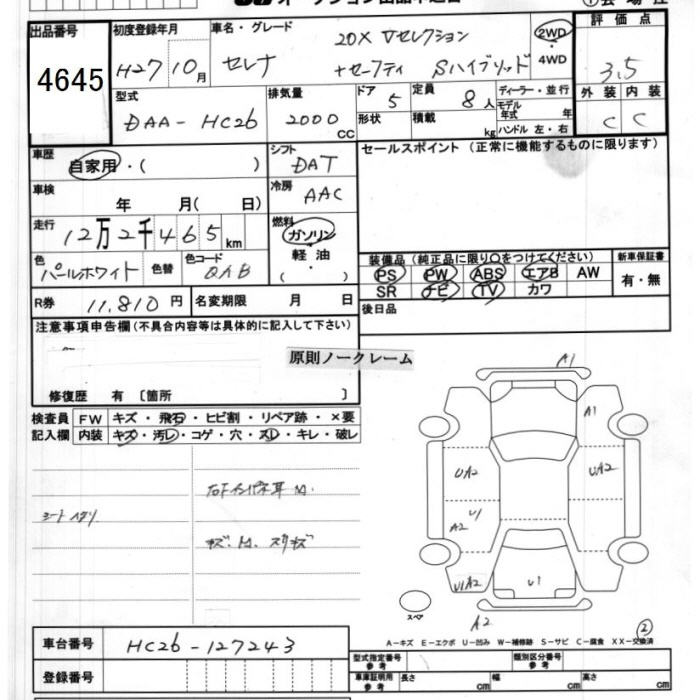 出品番号
4645
初度登録年月
H27 10月
車名・グレード
セレナ
20X Vセレクション
+セーフティ Sハイブリッド
2WD
4WD
評価点
3.5
外装 内装
C C
型式
DAA-HC26
排気量
2000
CC
ドア
5
定員
8人
形状
積載
kg
ディーラー・並行
モデル年式
年
ハンドル 左・右
車歴
自家用・( )
シフト
DAT
セールスポイント (正常に機能するものに限ります)
車検
年 月( 日)
冷房
AAC
走行
12万2千465km
燃料
ガソリン
軽油
( ・ )
色
パールホワイト
色替
色コード
QAB
装備品 (純正品に限り○をつけてください)
新車保証書
PS PW ABS エアB AW
SR ナビ TV カワ
有・無
R券
11,810円
名変期限 月 日
後日品
注意事項申告欄(不具合内容等は具体的に記入して下さい)
原則ノークレーム
修復歴 有〔箇所 〕
検査員
記入欄
FW キズ・飛石・ヒビ割・リペア跡・×要
内装 キズ・汚レ・コゲ・穴・スレ・キレ・破レ
シートヘタリ
キズ・M. スリキズ
A1
A1
UA2
UA2
U1
A2
U1A2
U1
A2
スペア
②
A-キズ E-エクボ U-凹み W-補修跡 S-サビ C-腐食 XX-交換済
車台番号
HC26-127243
登録番号
型式指定番号
参考
類別区分番号
参考
車庫証明用
参考
長さ cm
幅 cm
高さ cm